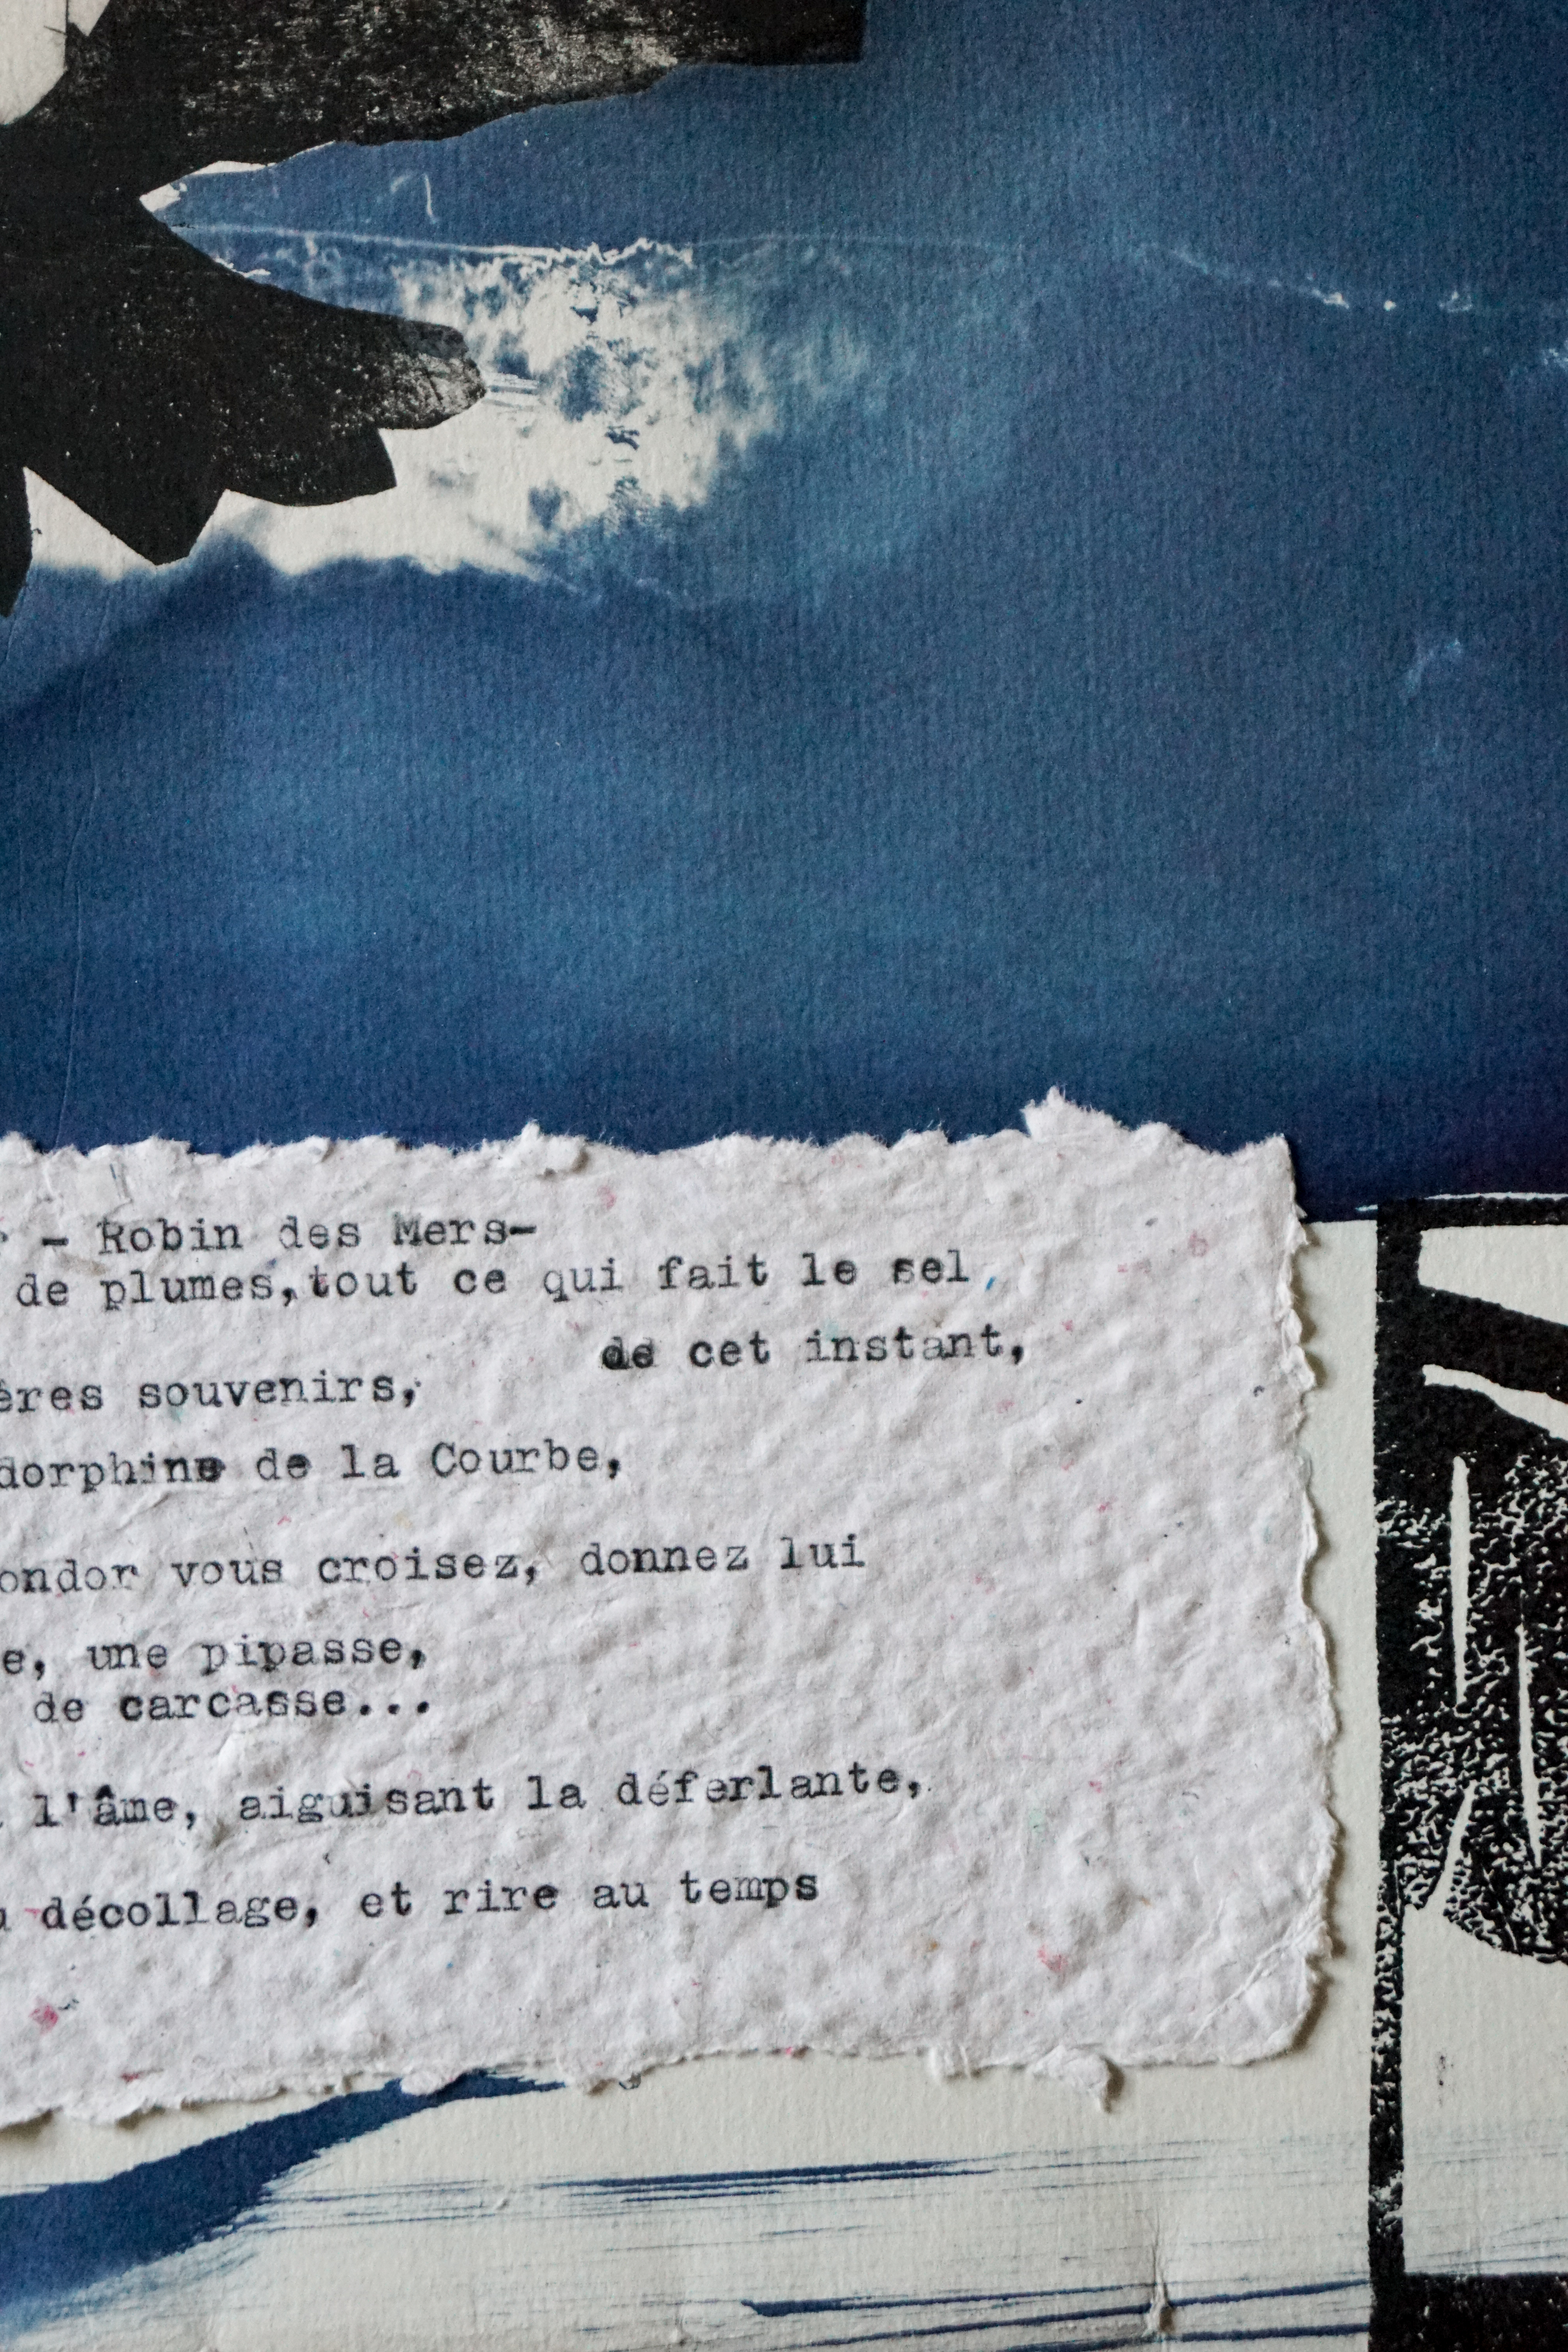 - Robin des Mers-
de plumes,tout ce qui fait le sel,
de cet instant,
ères souvenirs,
dorphine de la Courbe,
ondor vous croisez, donnez lui
e, une pipasse,
de carcasse...
l'âme, aiguisant la déferlante,
décollage, et rire au temps